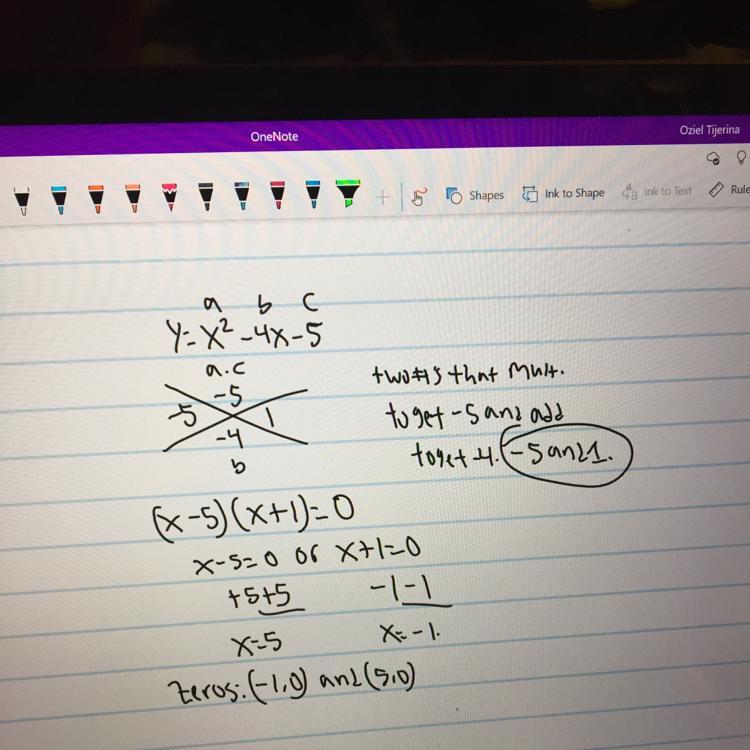 OneNote
Oziel Tijerina
Shapes
Ink to Shape
Ink to Text
Rule
a b c
y=x²-4x-5
a.c
-5
-5 1
-4
b
two #'s that mult.
to get -5 and add
to get -4. -5 and 1.
(x-5)(x+1)=0
x-5=0 or x+1=0
+5+5 -1-1
x=5 x=-1.
zeros: (-1,0) and (5,0)